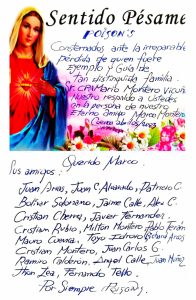 Sentido Pésame
POISON'S
Consternados ante la irreparable
Pérdida de quien fuere
Ejemplo y Guía de
tan distinguida familia.
Sr. Cnel Mario Montero Vicuña
Nuestro respaldo a Ustedes
en la persona de nuestro
Eterno amigo Marco Montero
Cuenca abril
Querido Marco
Tus amigos:
Juan Arias, Juan C Alvarado, Patricio C.
Bolívar Solorzano, Jaime Calle, Alex C.
Cristian Cherres, Javier Fernandez,
Cristian Rubio, Milton Montero, Pablo Terán
Mauro Cuenca,
Cristian Montero, Juan Carlos G.
Ramiro Calderon, Angel Calle, Juan Muñoz
Jhon Zea, Fernando Tello.
Por Siempre POISON'S.